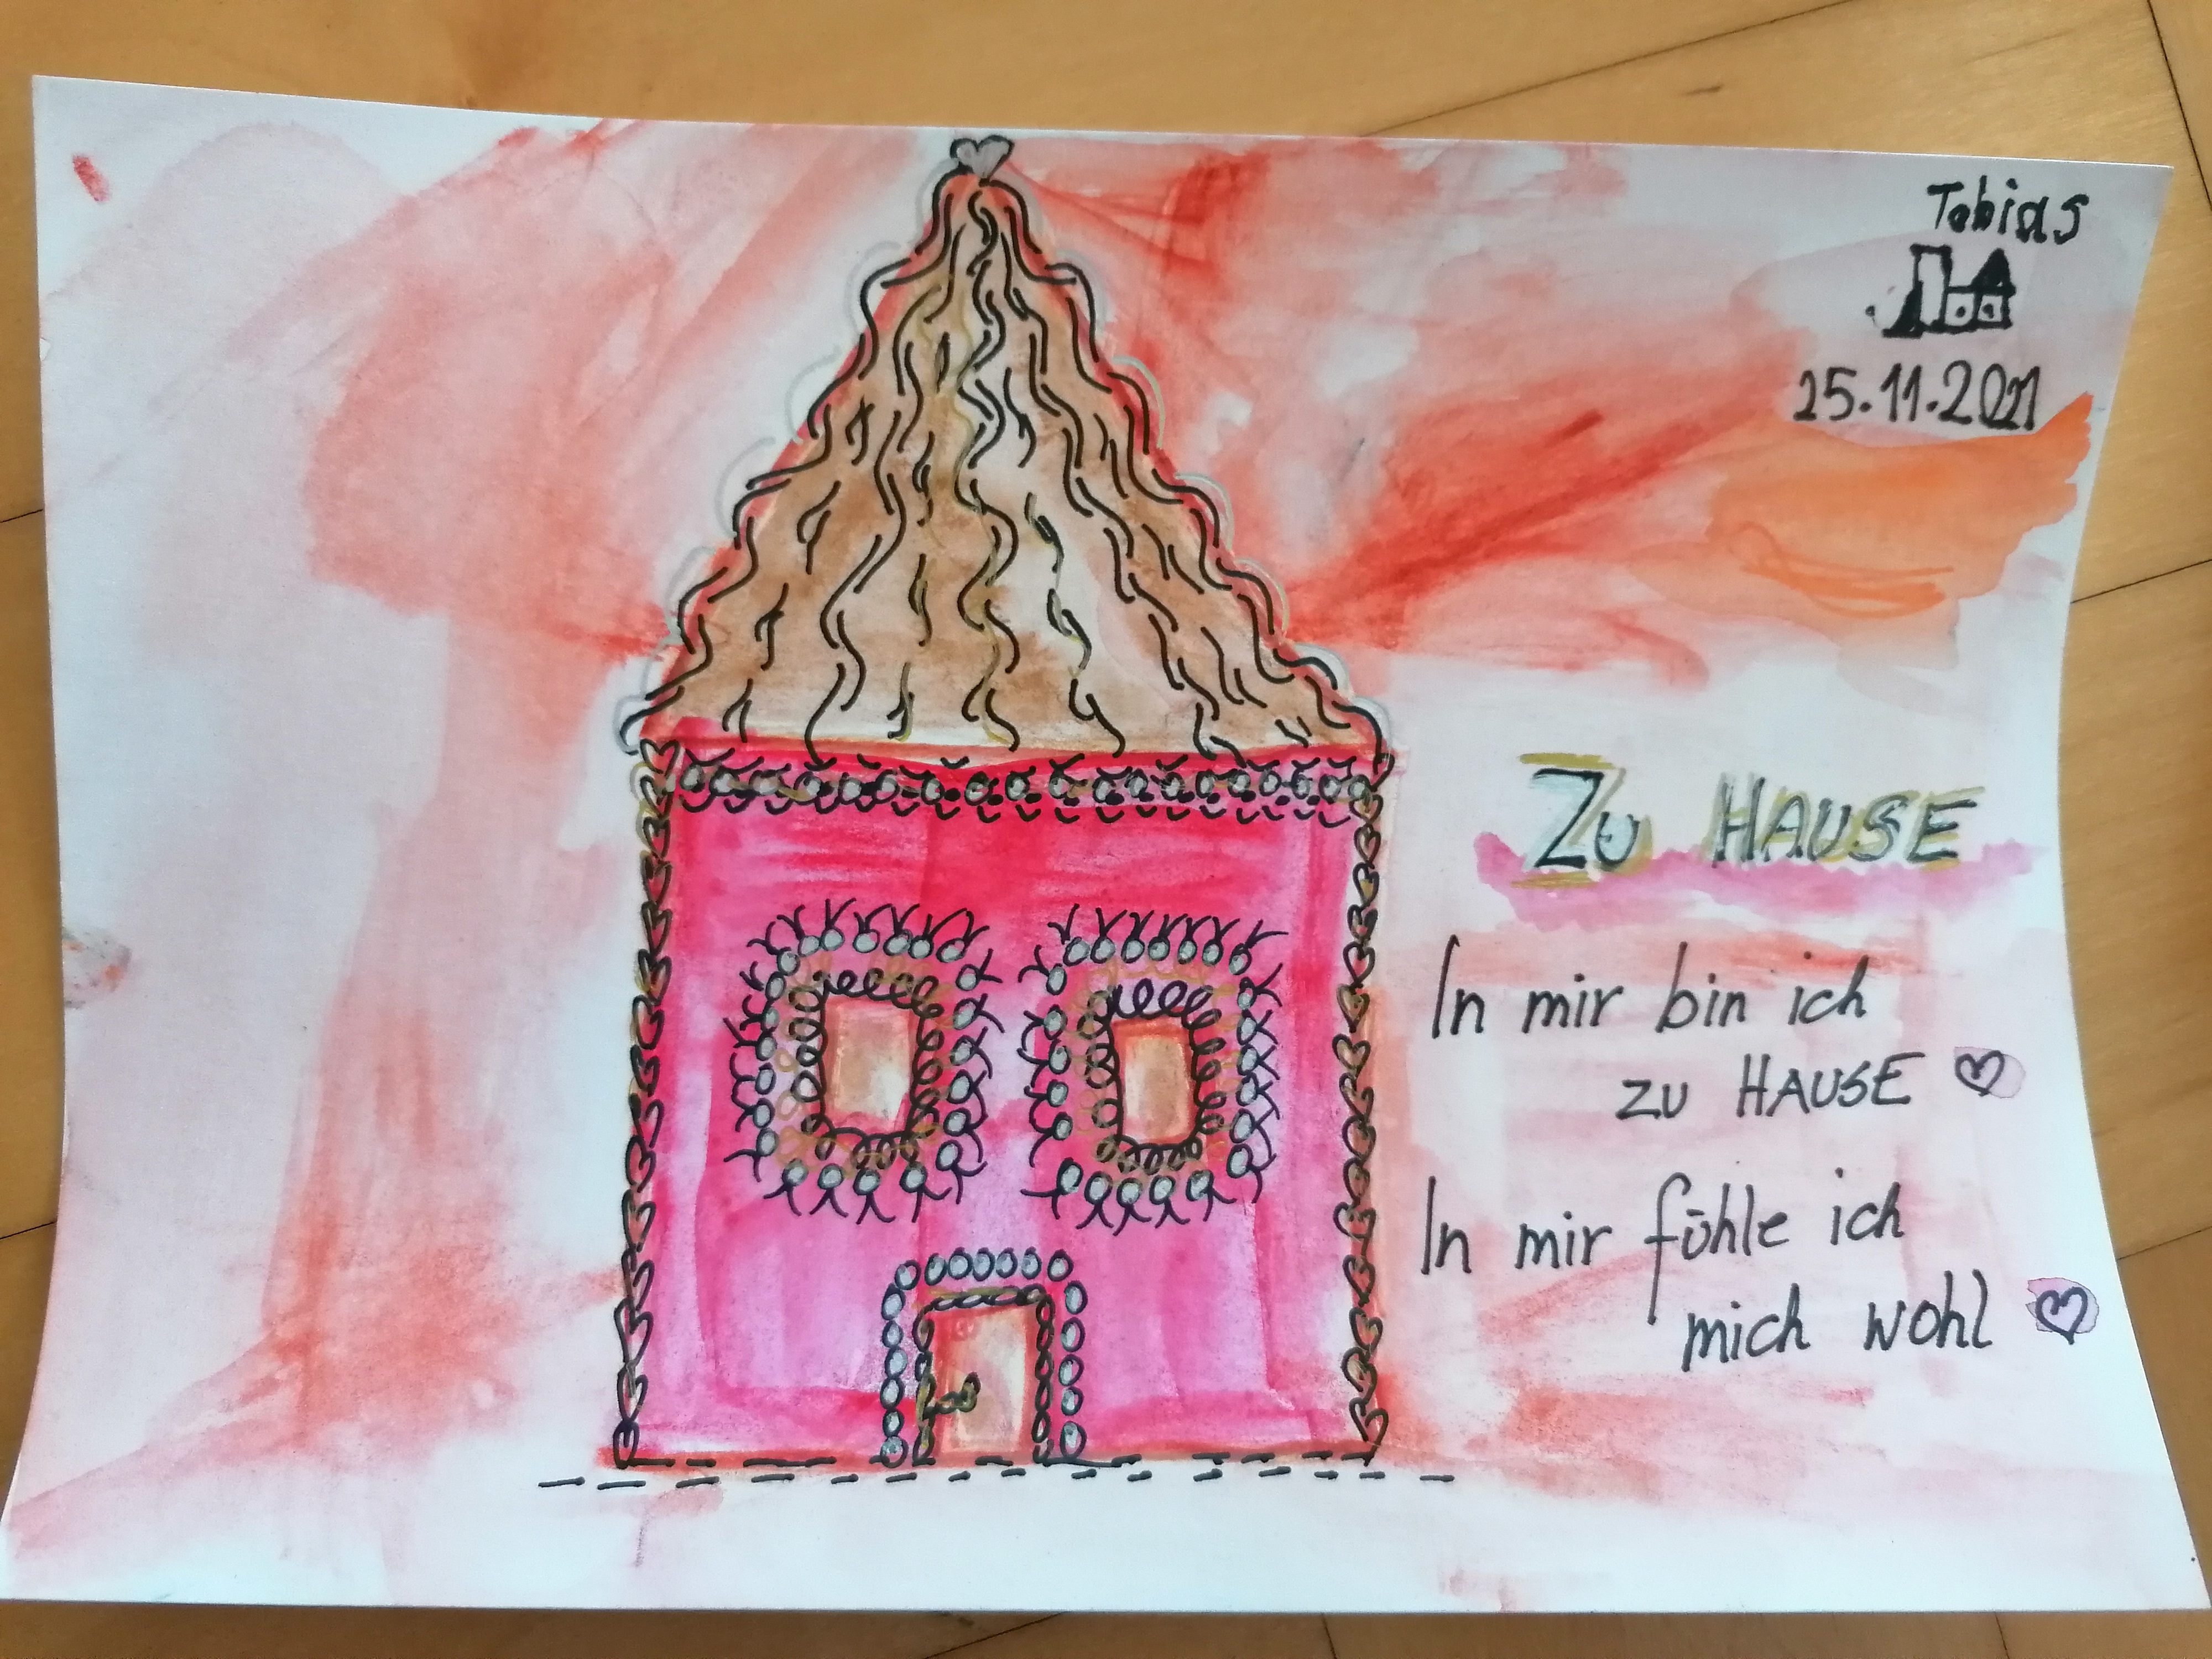 Tobias
25.11.2021
Zu HAUSE
In mir bin ich
zu HAUSE ♡
In mir fühle ich
mich wohl ♡